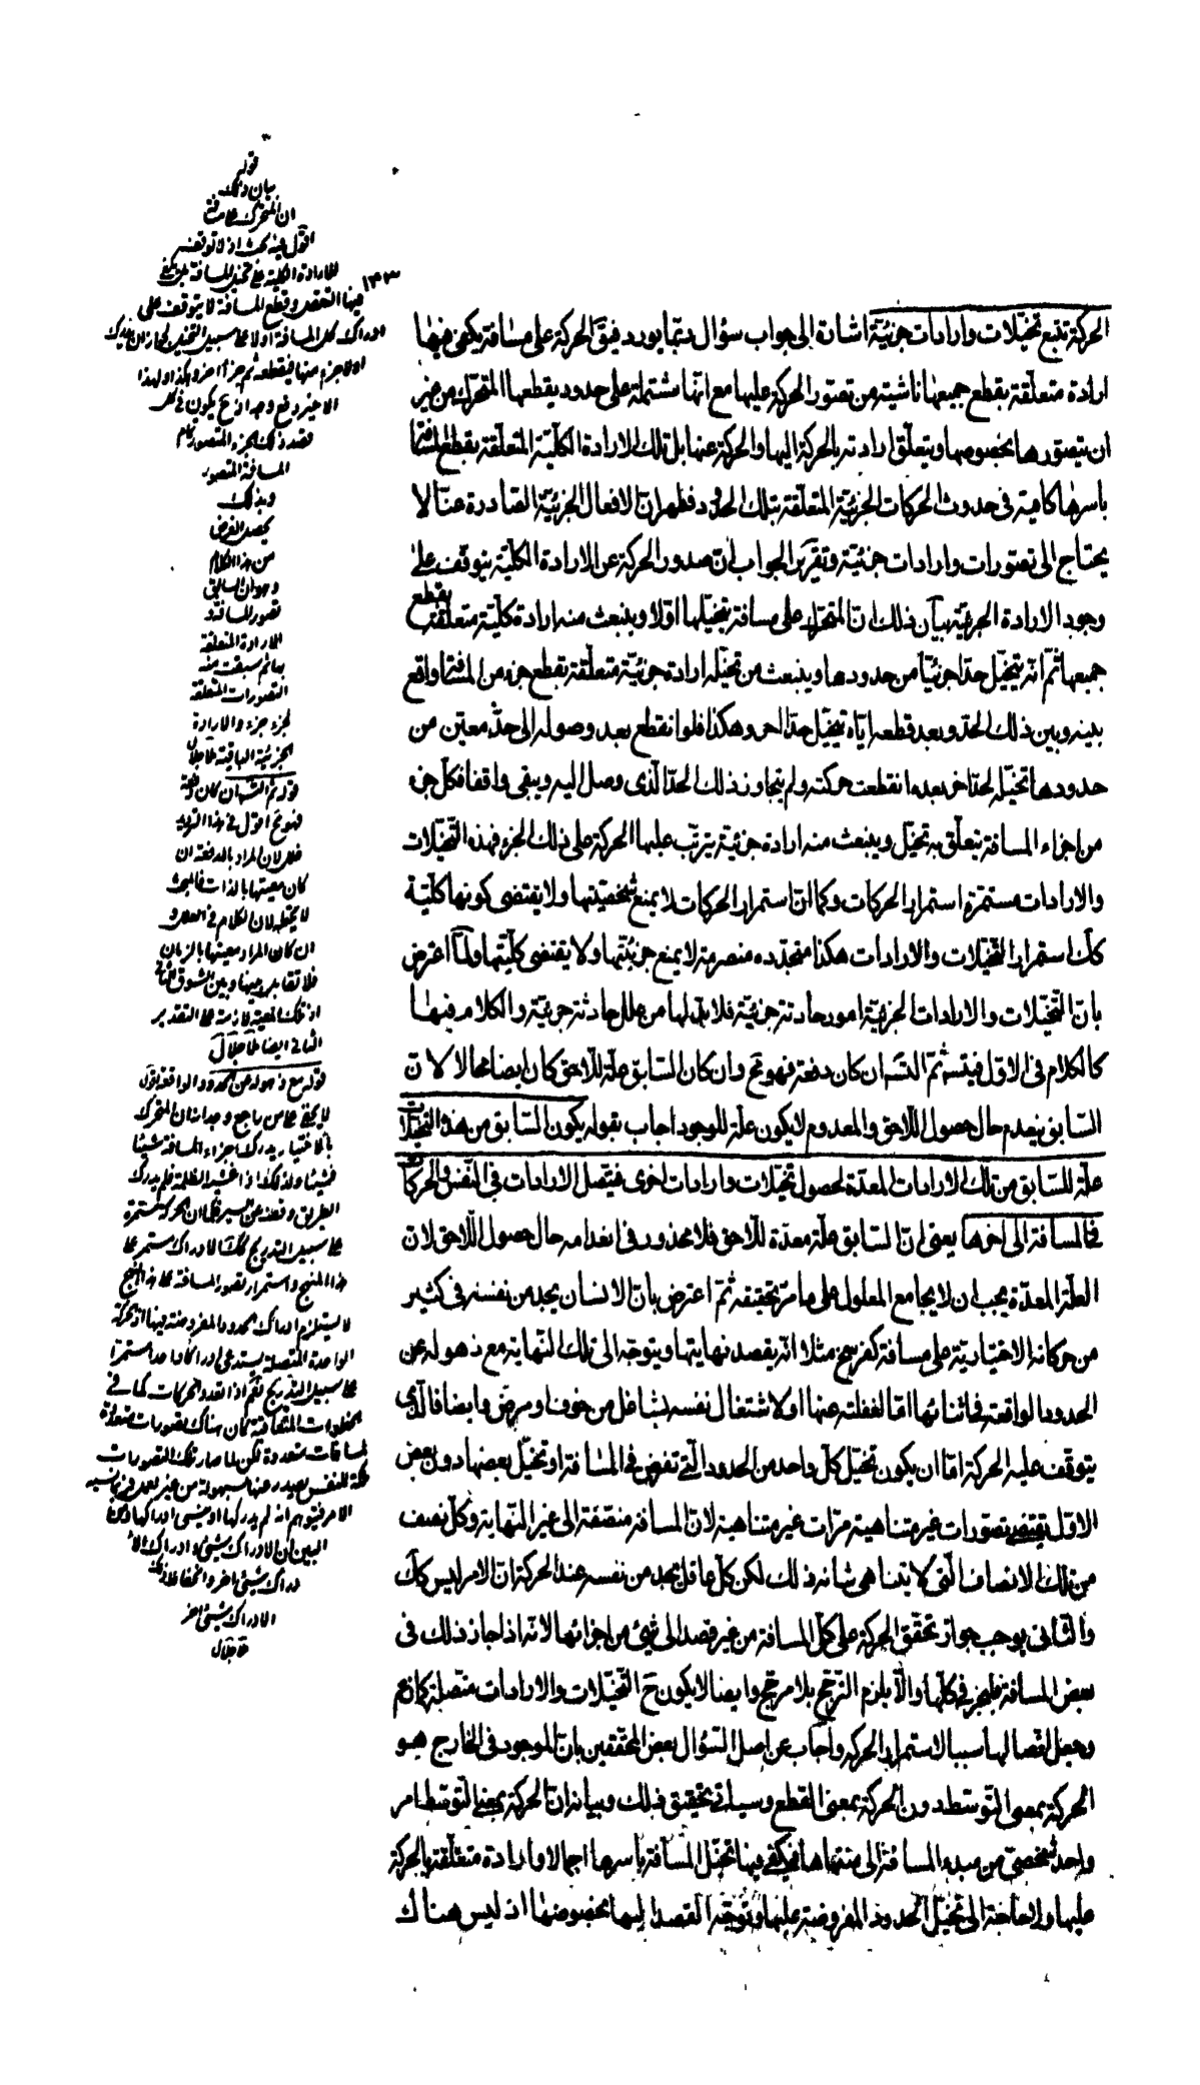 الحركة تتبع تخيلات وارادات جزئية اشارة الى جواب سؤال ربما يورد فيق الحركة على مسافة يكفى فيها
ارادة متعلقة بقطع جميعها ناشية من تصور الحركة عليها مع انها مشتملة على حدود يقطعها المتحرك من غير
ان يتصورها بخصوصها ويتعلق ارادته بالحركة اليها والحركة عنها بل تلك الارادة الكلية المتعلقة بقطع المسافة
باسرها كافية فى حدوث الحركات الجزئية المتعلقة بتلك الحدود فظهر ان الافعال الجزئية الصادرة عنا لا
يحتاج الى تصورات وارادات جزئية وتقرير الجواب ان صدور الحركة عن الارادة الكلية يتوقف على
وجود الارادة الجزئية بيان ذلك ان المتحرك على مسافة يتخيلها اولا وينبعث منه ارادة كلية متعلقة بقطع
جميعها ثم انه يتخيل حدا جزئيا من حدودها وينبعث من تخيله ارادة جزئية متعلقة بقطع جزء من المسافة واقع
بينه وبين ذلك الحد وبعد قطعه اياه يتخيل حدا اخر وهكذا فلو انقطع بعد وصوله الى حد معين من
حدودها تخيله لحد اخر بعده انقطعت حركته ولم يتجاوز ذلك الحد الذى وصل اليه ويبقى واقفا فكل جزء
من اجزاء المسافة يتعلق به تخيل وينبعث منه ارادة جزئية يترتب عليها الحركة على ذلك الجزء فهذه التخيلات
والارادات مستمرة استمرار الحركات وكما ان استمرار الحركات لا يمنع شخصيتها ولا يقتضى كونها كلية
كك استمرار التخيلات والارادات هكذا متجددة منصرمة لا يمنع جزئيتها ولا يقتضى كليتها ولما اعترض
بان التخيلات والارادات الجزئية امور حادثة جزئية فلا بد لها من علل حادثة جزئية والكلام فيها
كالكلام فى الاول فيتسه ثم التسه ان كان دفعة فهو مح وان كان السابق علة للاحق كان ايضا محالا لان
السابق ينعدم حال حصول اللاحق والمعدوم لا يكون علة للوجود اجاب بقوله يكون السابق من هذه التخيلات
علة للسابق من تلك الارادات المعدة لحصول تخيلات وارادات اخرى فيتصل الارادات فى النفس والحركات
فى المسافة الى اخرها يعنى ان السابق علة معدة للاحق فلا محذور فى انعدامه حال حصول اللاحق لان
العلة المعدة يجب ان لا يجامع المعلول على ما مر تحقيقه ثم اعترض بان الانسان يجد من نفسه فى كثير
من حركاته الاختيارية على مسافة كفرسخ مثلا انه يقصد نهايتها ويتوجه الى تلك النهاية مع ذهوله عن
الحدود الواقعة فى اثنائها اما لغفلته عنها او لاشتغال نفسه بشاغل من خوف او مرض وايضا فالذى
يتوقف عليه الحركة اما ان يكون تخيل كل واحد من الحدود التى تفرض فى المسافة او تخيل بعضها دون بعض
الاول يقتضى تصورات غير متناهية مرات غير متناهية لان المسافة منتصفة الى غير النهاية وكل نصف
من تلك الانصاف التى لا يتناهى شانه ذلك لكن كل عاقل يجد من نفسه عند الحركة ان الامر ليس كك
والثانى يوجب جواز تحقق الحركة على كل المسافة من غير قصد الى شئ من اجزائها لانه اذا جاز ذلك فى
بعض المسافة فليجز فى كلها والا يلزم الترجيح بلا مرجح وايضا لا يكون ح التخيلات والارادات متصلة كما زعم
وجعل اتصالها سببا لاستمرار الحركة واجاب عن اصل السؤال بعض المحققين بان الموجود فى الخارج هو
الحركة بمعنى التوسط دون الحركة بمعنى القطع وسياتى تحقيق ذلك وبيانه ان الحركة بمعنى التوسط امر
واحد شخصى من مبدء المسافة الى منتهاها فيكفى فيها تخيل المسافة باسرها اجمالا وارادة متعلقة بالحركة
عليها ولا حاجة الى تخيل الحدود المفروضة عليها وتوجه القصد اليها بخصوصها اذ ليس هناك
١٣٣
قوله
بيان ذلك
ان المتحرك على مسافة
اقول فيه بحث اذ لا توقف
للارادة الكلية على تخيل المسافة بل يكفى
فيها التعقل وقطع المسافة لا يتوقف على
ادراك كل المسافة اولا على سبيل التخيل لجواز ان يدرك
اولا جزء منها فيقطعه ثم جزأ اخر وهكذا
المسافة المتصور
وبذلك
يحصل الغرض
من هذا الكلام
وهو ان السابق
تصور المسافة و
الارادة المتعلقة
بها ثم ينبعث منه
التصورات المتعلقة
لجزء جزء والارادة
الجزئية الباقية
قوله ثم التسه ان كان دفعة
فهو مح اقول فى هذا الترديد
خلل لان المراد بالدفعة ان
كان معيتها بالذات فالبحث
لا يحتمله لان الكلام فى العلل و
ان كان المراد معيتها بالزمان
فلا تقابل بينها وبين الشق الثانى
اذ تلك المعية لازمة على التقدير
الثانى ايضا
قوله مع ذهوله عن الحدود الواقعة اقول
لا يخفى على من راجع وجدانه ان المتحرك
بالاختيار يدرك اجزاء المسافة شيئا
فشيئا ولذلك اذا غشيه الظلمة فلم يدرك
الطريق وقف عن السير فكما ان الحركة مستمرة
على سبيل التدريج كك الادراك مستمر على
هذا المنهج واستمرار تصور المسافة على هذا النهج
لا يستلزم ادراك الحدود المفروضة فيها اذ الحركة
الواحدة المتصلة يستدعى ادراكا واحدا مستمرا
على سبيل التدريج نعم اذا تعدد الحركات كما فى
الخطوات المتعاقبة كان هناك تصورات متعددة
لمسافات متعددة لكن لما صار تلك التصورات
ملكة للنفس يصدر عنها بسهولة من غير
الامر فيتوهم انه لم يدركها او ينسى ادراكها ومن
البين ان الادراك شئ وادراك الا
دراك شئ اخر
الادراك شئ اخر